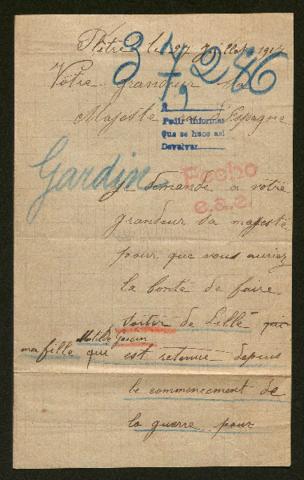 le 27 Juillet 1917
37286
Votre grandeur Sa
Majesté d'Espagne
Pedir informes
Que se hace así
Devolver
Gardin
Fecho
Je demande a votre
grandeur Sa majesté
pour que vous auriez
la bonté de faire
de Lille que
ma fille Matilde que est retenue depuis
le commencement de
la guerre pour